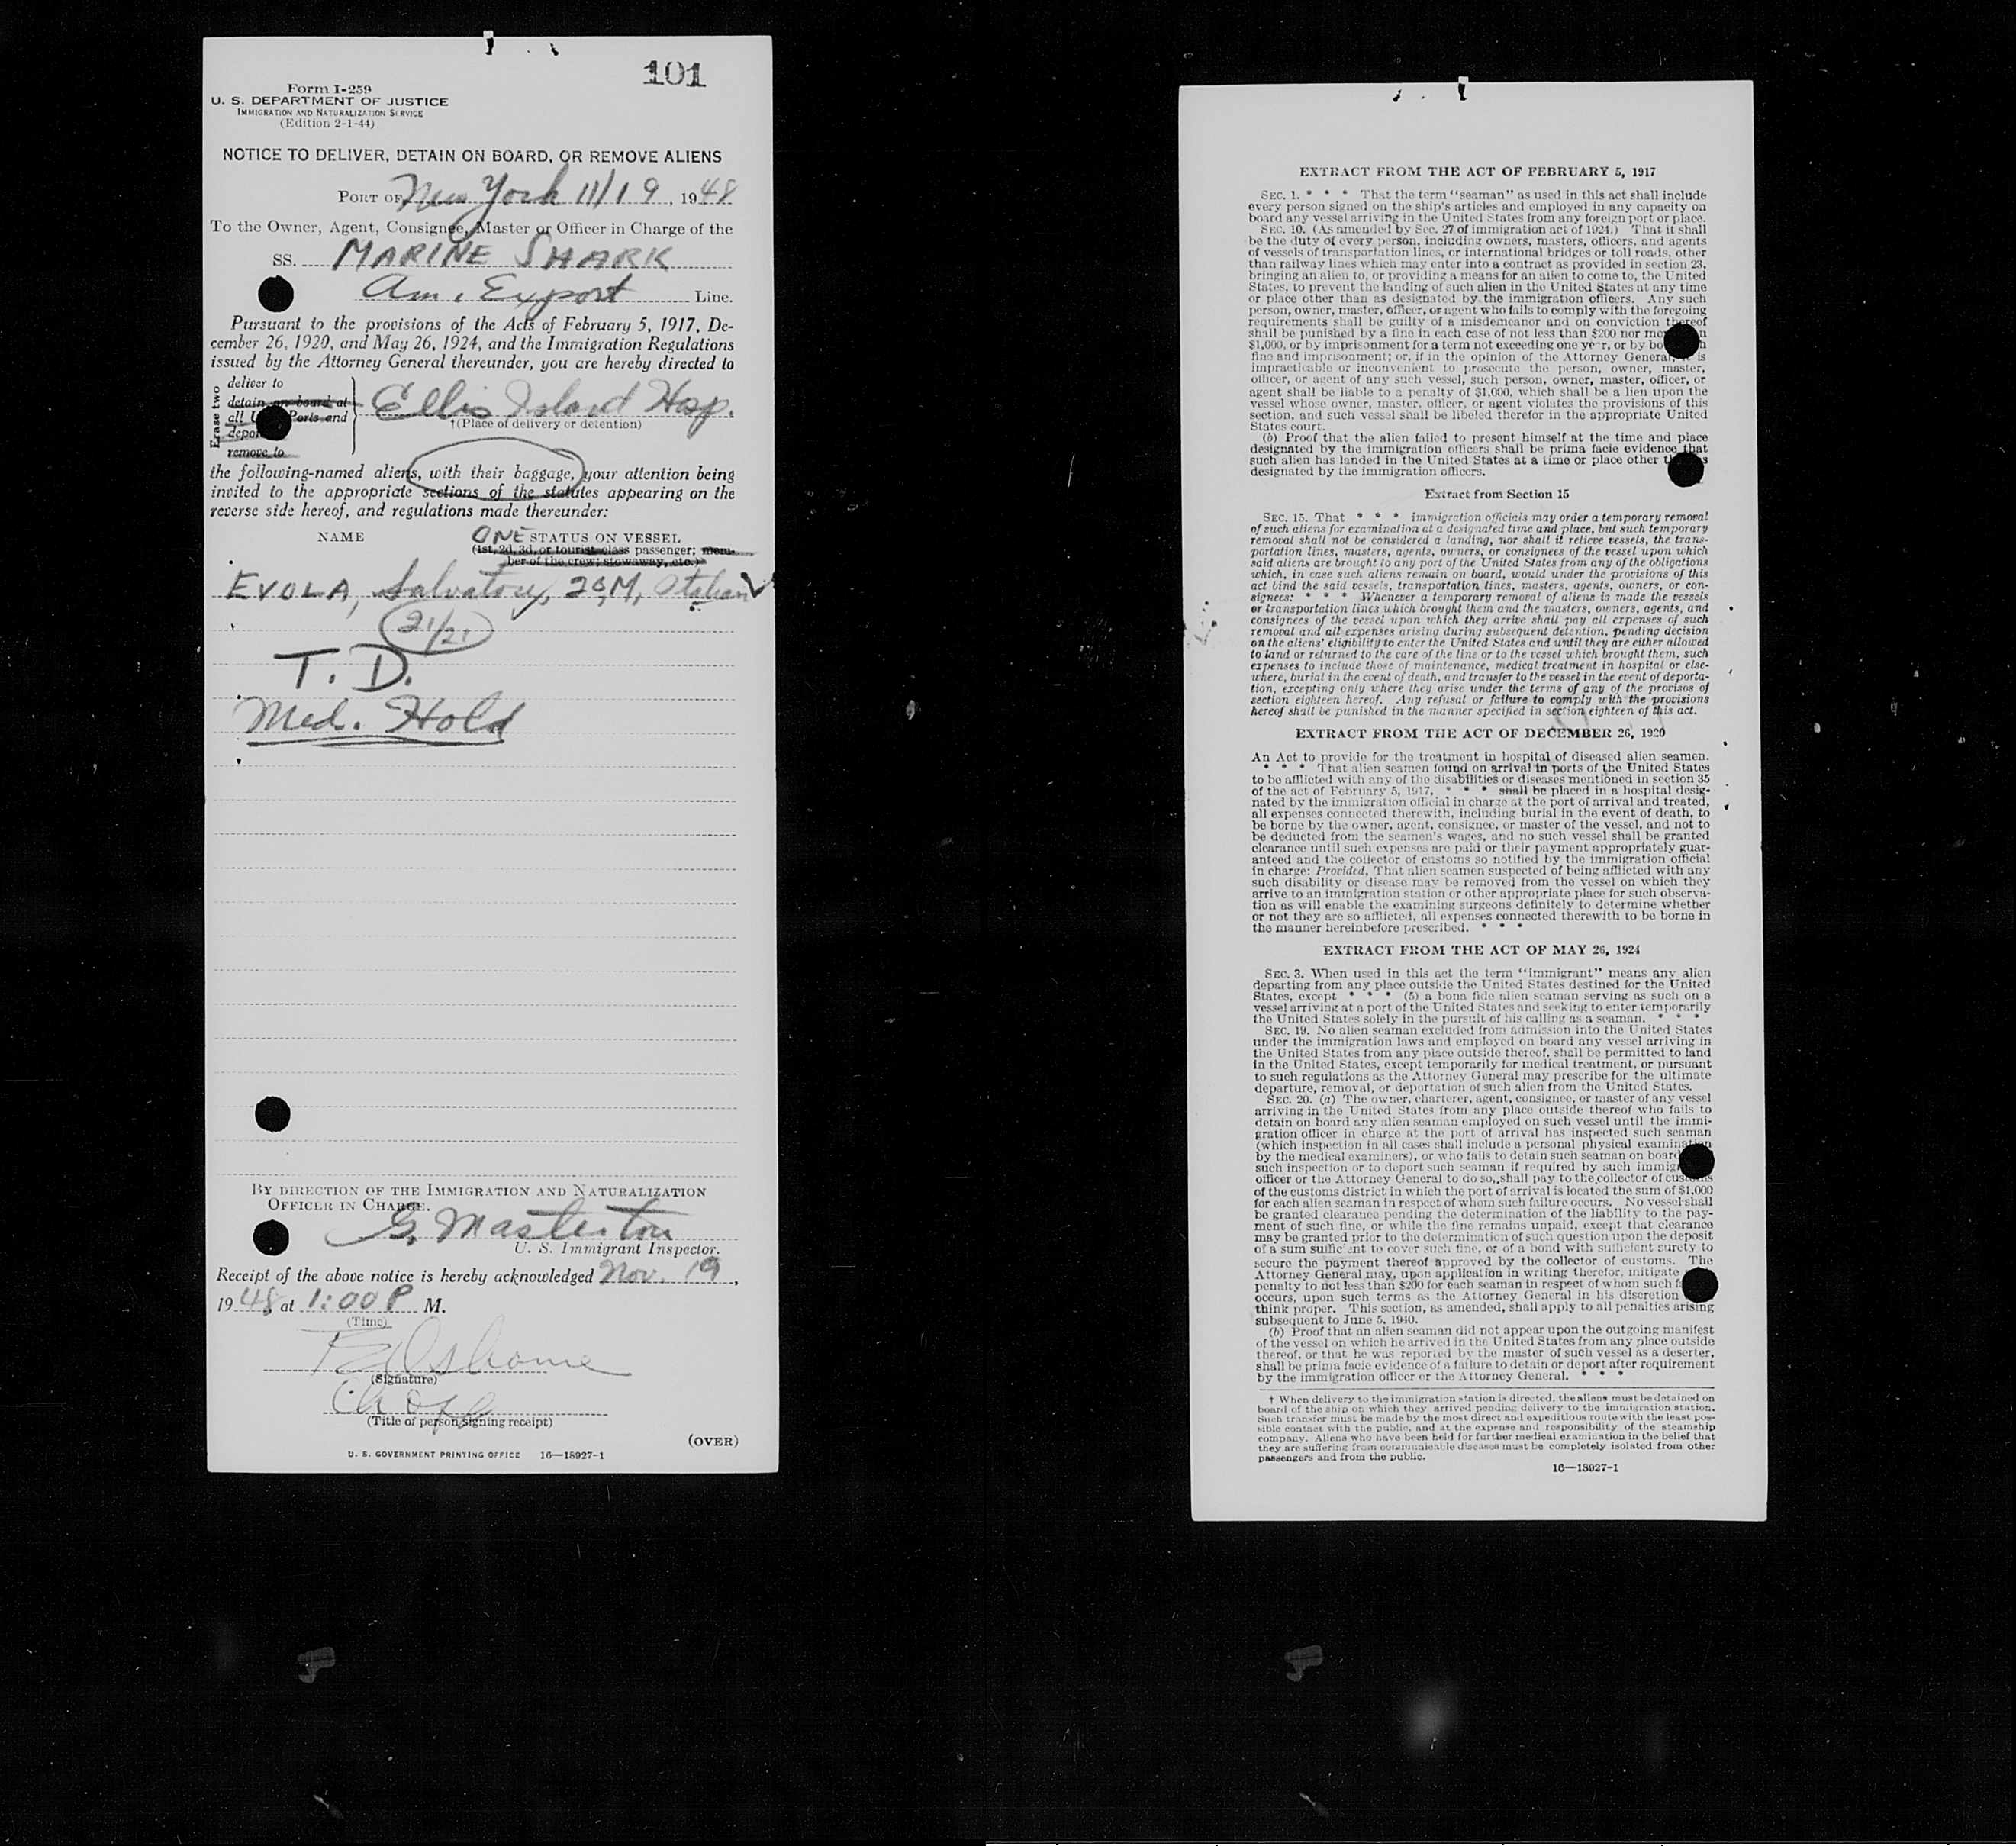 101
Form I-259
U. S. DEPARTMENT OF JUSTICE
IMMIGRATION AND NATURALIZATION SERVICE
(Edition 2-1-44)
NOTICE TO DELIVER, DETAIN ON BOARD, OR REMOVE ALIENS
PORT OF New York 11/19, 1948
To the Owner, Agent, Consignee, Master or Officer in Charge of the
SS. MARINE SHARK
Am. Export Line.
Pursuant to the provisions of the Acts of February 5, 1917, De-
cember 26, 1920, and May 26, 1924, and the Immigration Regulations
issued by the Attorney General thereunder, you are hereby directed to
Erase two
deliver to
detain on board at
all U Ports and
depor
remove to
Ellis Island Hosp.
†(Place of delivery or detention)
the following-named aliens, with their baggage, your attention being
invited to the appropriate sections of the statutes appearing on the
reverse side hereof, and regulations made thereunder:
NAME ONE STATUS ON VESSEL
(1st, 2d, 3d, or tourist class passenger; mem-
ber of the crew; stowaway, etc.)
EVOLA, Salvatore, 20, M, Italian ✓
21/21
T. D.
Med. Hold
BY DIRECTION OF THE IMMIGRATION AND NATURALIZATION
OFFICER IN CHARGE.
G. Masterton
U. S. Immigrant Inspector.
Receipt of the above notice is hereby acknowledged Nov. 19,
1948, at 1:00 P M.
(Time)
Osborne
(Signature)
Ch Off
(Title of person signing receipt)
(OVER)
U. S. GOVERNMENT PRINTING OFFICE 16—18927-1
EXTRACT FROM THE ACT OF FEBRUARY 5, 1917
SEC. 1. * * * That the term "seaman" as used in this act shall include
every person signed on the ship's articles and employed in any capacity on
board any vessel arriving in the United States from any foreign port or place.
SEC. 10. (As amended by Sec. 27 of immigration act of 1924.) That it shall
be the duty of every person, including owners, masters, officers, and agents
of vessels of transportation lines, or international bridges or toll roads, other
than railway lines which may enter into a contract as provided in section 23,
bringing an alien to, or providing a means for an alien to come to, the United
States, to prevent the landing of such alien in the United States at any time
or place other than as designated by the immigration officers. Any such
person, owner, master, officer, or agent who fails to comply with the foregoing
requirements shall be guilty of a misdemeanor and on conviction thereof
shall be punished by a fine in each case of not less than $200 nor mor n
$1,000, or by imprisonment for a term not exceeding one year, or by bo h
fine and imprisonment; or, if in the opinion of the Attorney General, is
impracticable or inconvenient to prosecute the person, owner, master,
officer, or agent of any such vessel, such person, owner, master, officer, or
agent shall be liable to a penalty of $1,000, which shall be a lien upon the
vessel whose owner, master, officer, or agent violates the provisions of this
section, and such vessel shall be libeled therefor in the appropriate United
States court.
(b) Proof that the alien failed to present himself at the time and place
designated by the immigration officers shall be prima facie evidence that
such alien has landed in the United States at a time or place other t s
designated by the immigration officers.
Extract from Section 15
SEC. 15. That * * * immigration officials may order a temporary removal
of such aliens for examination at a designated time and place, but such temporary
removal shall not be considered a landing, nor shall it relieve vessels, the trans-
portation lines, masters, agents, owners, or consignees of the vessel upon which
said aliens are brought to any port of the United States from any of the obligations
which, in case such aliens remain on board, would under the provisions of this
act bind the said vessels, transportation lines, masters, agents, owners, or con-
signees: * * * Whenever a temporary removal of aliens is made the vessels
or transportation lines which brought them and the masters, owners, agents, and
consignees of the vessel upon which they arrive shall pay all expenses of such
removal and all expenses arising during subsequent detention, pending decision
on the aliens' eligibility to enter the United States and until they are either allowed
to land or returned to the care of the line or to the vessel which brought them, such
expenses to include those of maintenance, medical treatment in hospital or else-
where, burial in the event of death, and transfer to the vessel in the event of deporta-
tion, excepting only where they arise under the terms of any of the provisos of
section eighteen hereof. Any refusal or failure to comply with the provisions
hereof shall be punished in the manner specified in section eighteen of this act.
EXTRACT FROM THE ACT OF DECEMBER 26, 1920
An Act to provide for the treatment in hospital of diseased alien seamen.
* * * That alien seamen found on arrival in ports of the United States
to be afflicted with any of the disabilities or diseases mentioned in section 35
of the act of February 5, 1917, * * * shall be placed in a hospital desig-
nated by the immigration official in charge at the port of arrival and treated,
all expenses connected therewith, including burial in the event of death, to
be borne by the owner, agent, consignee, or master of the vessel, and not to
be deducted from the seamen's wages, and no such vessel shall be granted
clearance until such expenses are paid or their payment appropriately guar-
anteed and the collector of customs so notified by the immigration official
in charge: Provided, That alien seamen suspected of being afflicted with any
such disability or disease may be removed from the vessel on which they
arrive to an immigration station or other appropriate place for such observa-
tion as will enable the examining surgeons definitely to determine whether
or not they are so afflicted, all expenses connected therewith to be borne in
the manner hereinbefore prescribed. * * *
EXTRACT FROM THE ACT OF MAY 26, 1924
SEC. 3. When used in this act the term "immigrant" means any alien
departing from any place outside the United States destined for the United
States, except * * * (5) a bona fide alien seaman serving as such on a
vessel arriving at a port of the United States and seeking to enter temporarily
the United States solely in the pursuit of his calling as a seaman. * * *
SEC. 19. No alien seaman excluded from admission into the United States
under the immigration laws and employed on board any vessel arriving in
the United States from any place outside thereof, shall be permitted to land
in the United States, except temporarily for medical treatment, or pursuant
to such regulations as the Attorney General may prescribe for the ultimate
departure, removal, or deportation of such alien from the United States.
SEC. 20. (a) The owner, charterer, agent, consignee, or master of any vessel
arriving in the United States from any place outside thereof who fails to
detain on board any alien seaman employed on such vessel until the immi-
gration officer in charge at the port of arrival has inspected such seaman
(which inspection in all cases shall include a personal physical examination
by the medical examiners), or who fails to detain such seaman on board
such inspection or to deport such seaman if required by such immig
officer or the Attorney General to do so, shall pay to the collector of customs
of the customs district in which the port of arrival is located the sum of $1,000
for each alien seaman in respect of whom such failure occurs. No vessel shall
be granted clearance pending the determination of the liability to the pay-
ment of such fine, or while the fine remains unpaid, except that clearance
may be granted prior to the determination of such question upon the deposit
of a sum sufficient to cover such fine, or of a bond with sufficient surety to
secure the payment thereof approved by the collector of customs. The
Attorney General may, upon application in writing therefor, mitigate
penalty to not less than $200 for each seaman in respect of whom such f
occurs, upon such terms as the Attorney General in his discretion
think proper. This section, as amended, shall apply to all penalties arising
subsequent to June 5, 1940.
(b) Proof that an alien seaman did not appear upon the outgoing manifest
of the vessel on which he arrived in the United States from any place outside
thereof, or that he was reported by the master of such vessel as a deserter,
shall be prima facie evidence of a failure to detain or deport after requirement
by the immigration officer or the Attorney General. * * *
† When delivery to the immigration station is directed, the aliens must be detained on
board of the ship on which they arrived pending delivery to the immigration station.
Such transfer must be made by the most direct and expeditious route with the least pos-
sible contact with the public, and at the expense and responsibility of the steamship
company. Aliens who have been held for further medical examination in the belief that
they are suffering from communicable diseases must be completely isolated from other
passengers and from the public.
16—18927-1